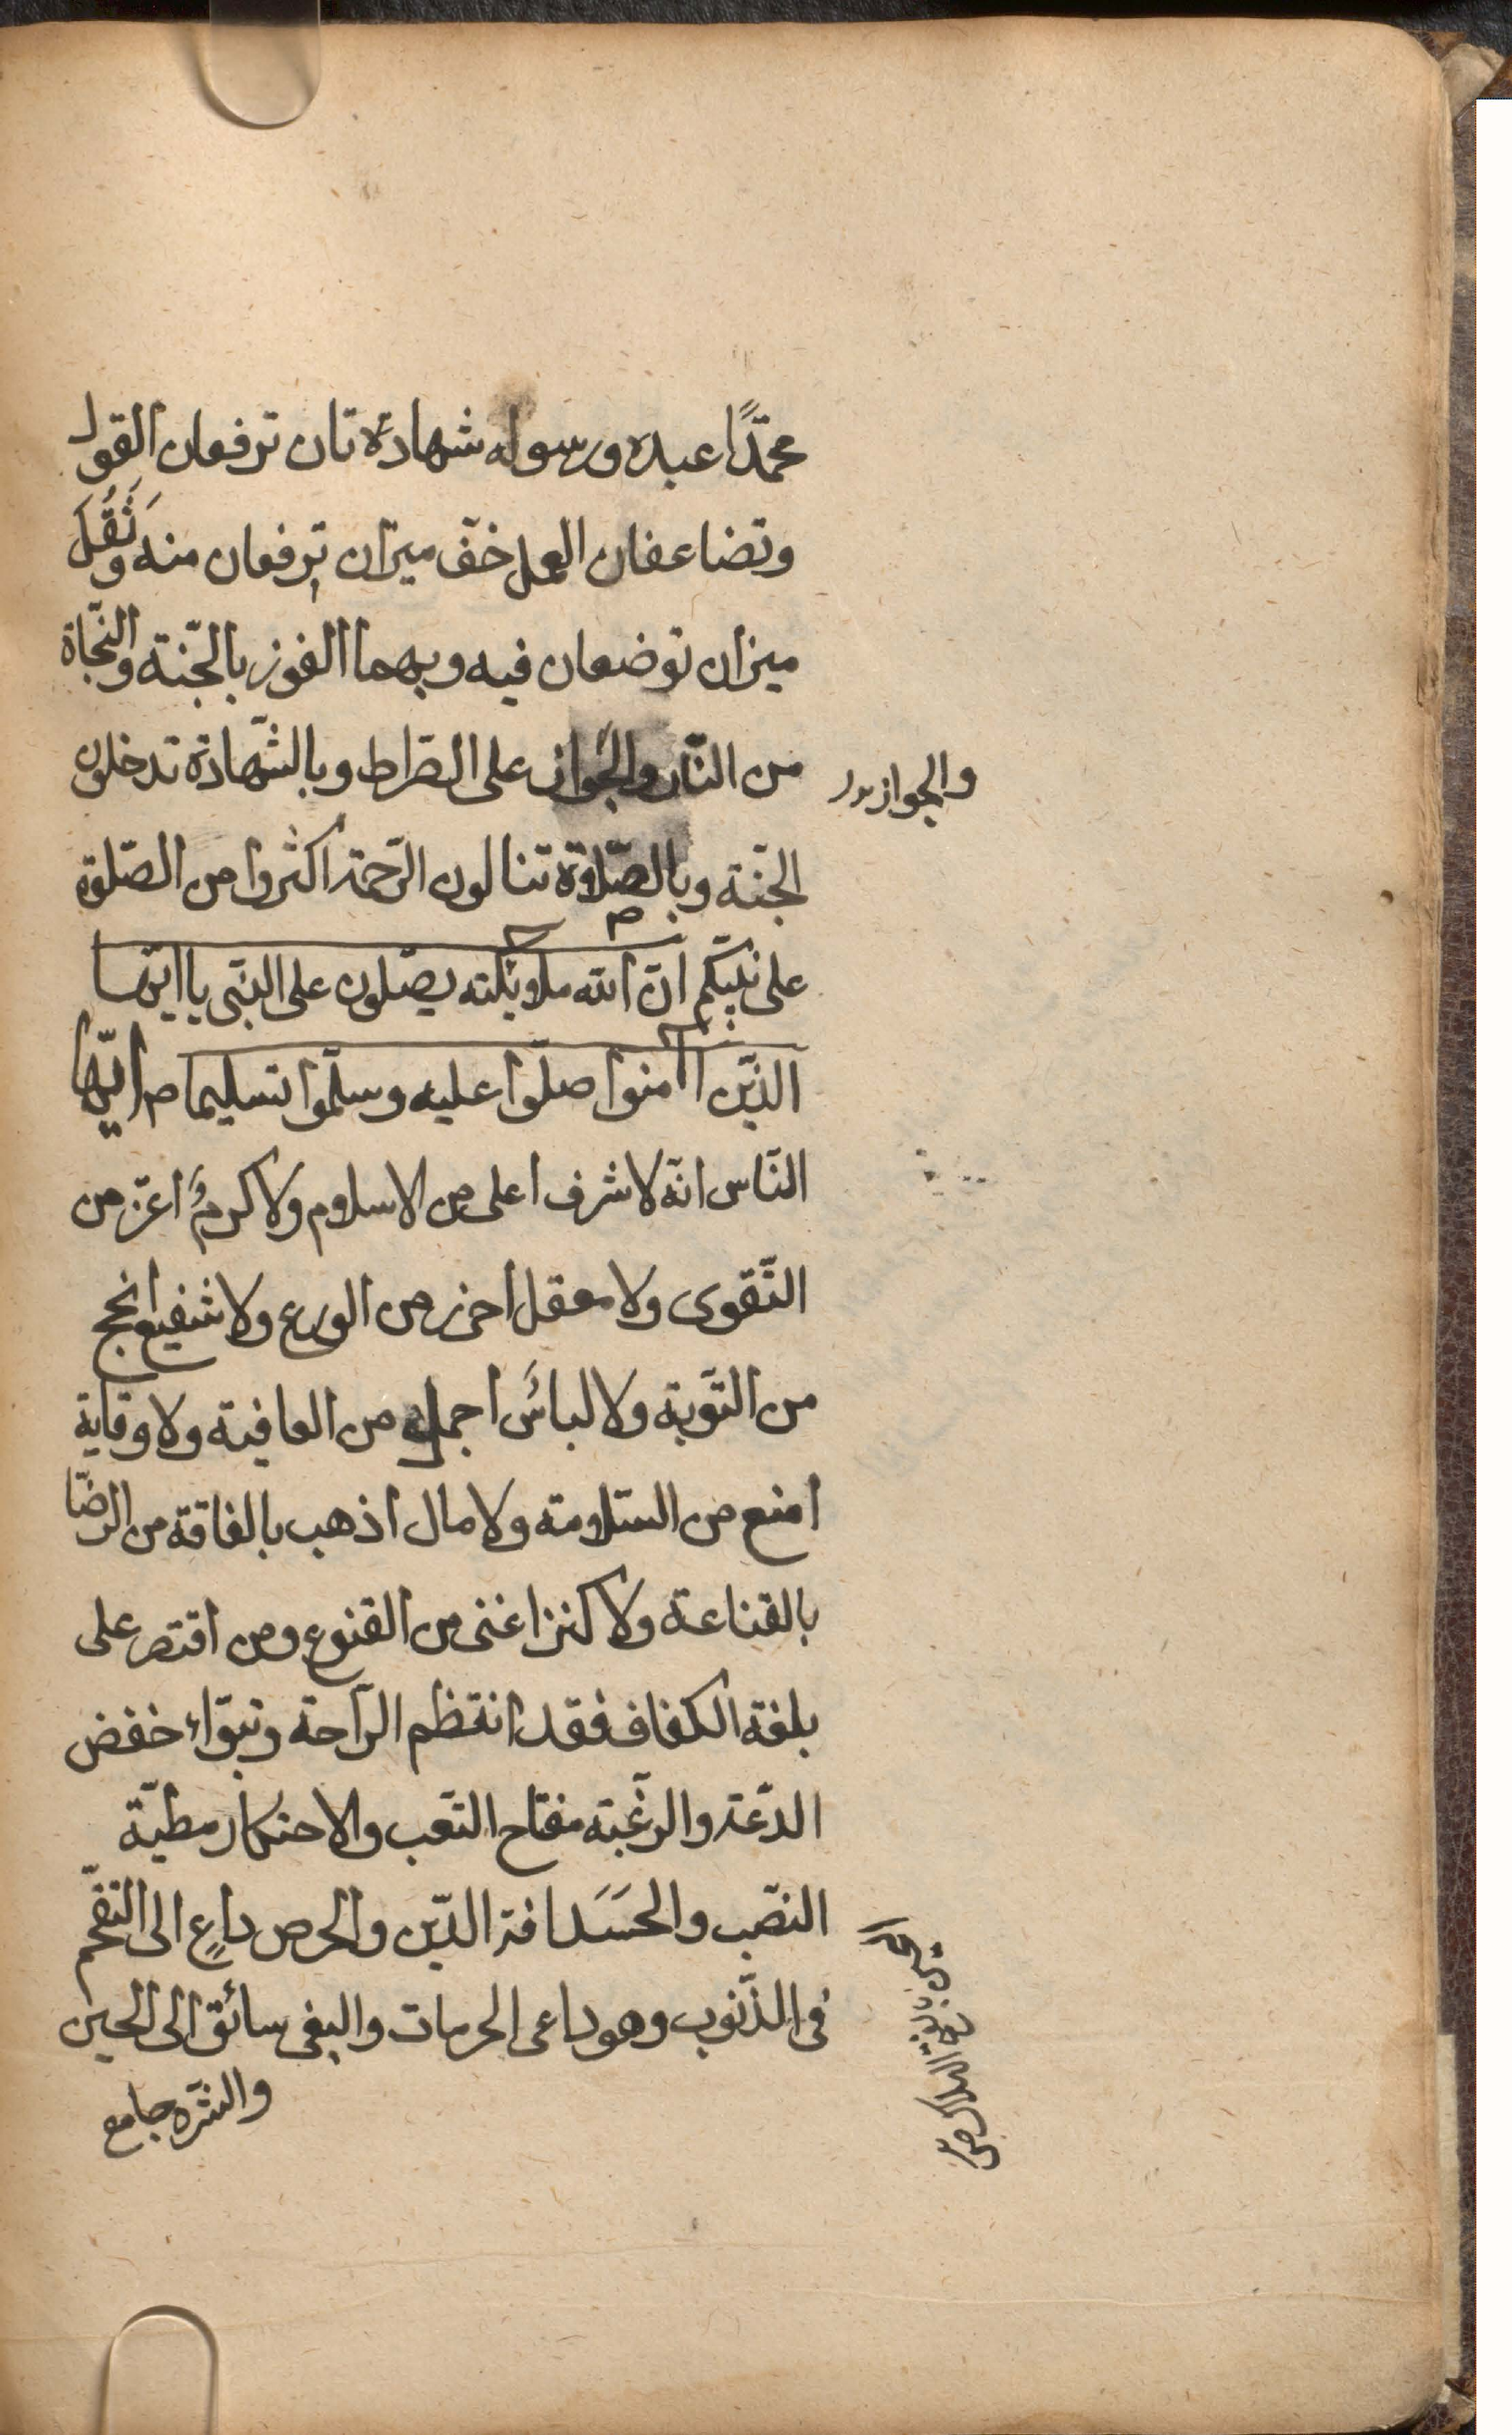 محمّدًا عبده ورسوله شهادة تان ترفعان القول
وتضاعفان العمل خفّ ميزان ترفعان منه وثَقُلَ
ميزان توضعان فيه وبهما الفوز بالجّنة والنّجاة
من النّار والجواز على الصّراط وبالشّهادة تدخلون
والجواز
الجنّة وبالصّلاوة تنالون الرّحمة اكثروا من الصّلوة
على نبيّكم انّ الله وملاوئكته يصلّون على النبّى يا ايّها
الذّين اامنوا صلّوا عليه وسلّموا تسليما م ايّها
النّاس انّه لا شرف اعلى من الاسلاوم ولا كرمٌ اعزّ من
التّقوى ولا معقل احرز من الورع ولا شفيع انجح
من التّوبة ولا لباسٌ اجمل من العافية ولا وقاية
امنع من السّلاومة ولا مال اذهب بالفاقة من الرّضا
بالقناعة ولا كنز اغنى من القنوع ومن اقتصر على
بلغة الكفاف فقد انتظم الرّاحة وتبوّاء خفض
الدّعة والرّغبته مفتاح التّعب والاحتكار مطيّة
النصّب والحَسَد افة الدّين والحرص داعٍ الى التقحّم
فى الذّنوب وهو داعى الحرمات والبغى سائق الى الحين
والشّره جامع